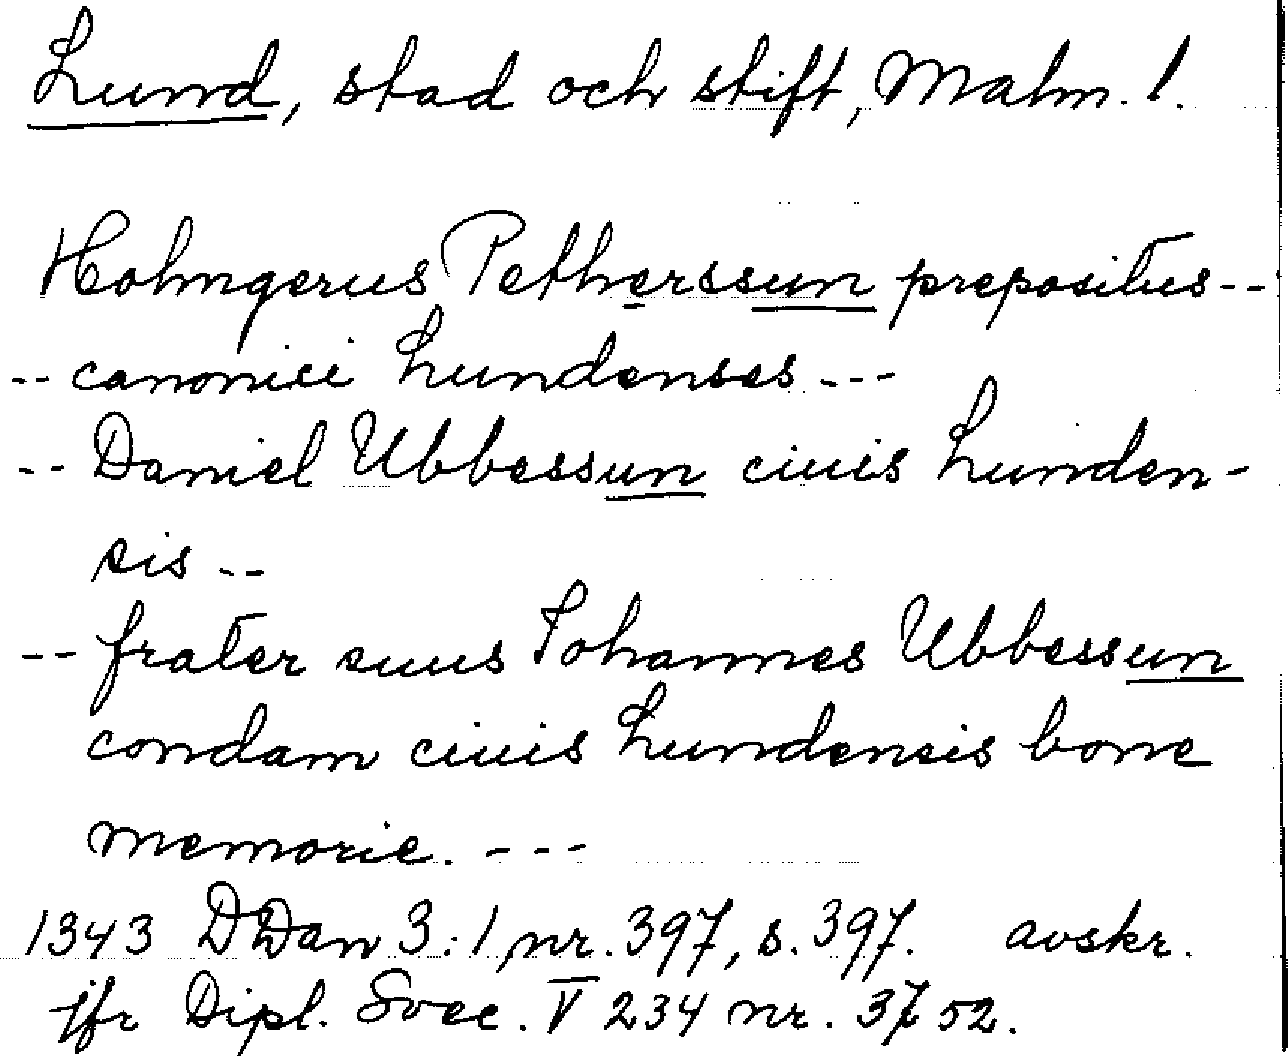 Lund, stad och stift, Malm. l.
Holmgerus Petherssun prepositus--
-- canonici Lundenses ---
-- Daniel Ubbessun ciuis Lunden-
sis --
-- frater suus Iohannes Ubbessun
condam ciuis Lundensis bone
memorie. ---
1343 DDan 3:1, nr. 397, s. 397. avskr.
jfr Dipl. Svec. V 234 nr. 3752.